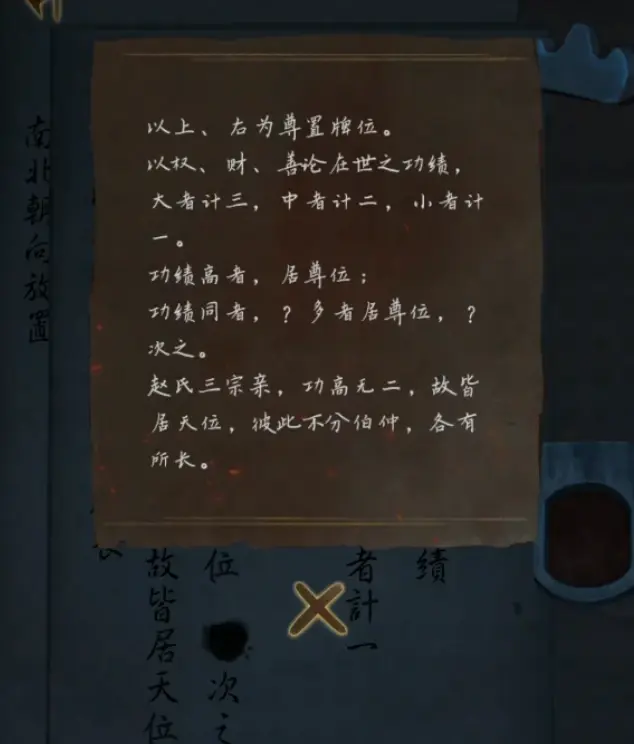 以上、右为尊置牌位。
以权、财、善论在世之功绩，
大者计三，中者计二，小者计
一。
功绩高者，居尊位；
功绩同者，？多者居尊位，？
次之。
赵氏三宗亲，功高无二，故皆
居天位，彼此不分伯仲，各有
所长。
南北朝向放置
績
者計一
位 次之
故皆居天位